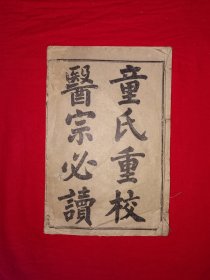 童氏重校
醫宗必讀